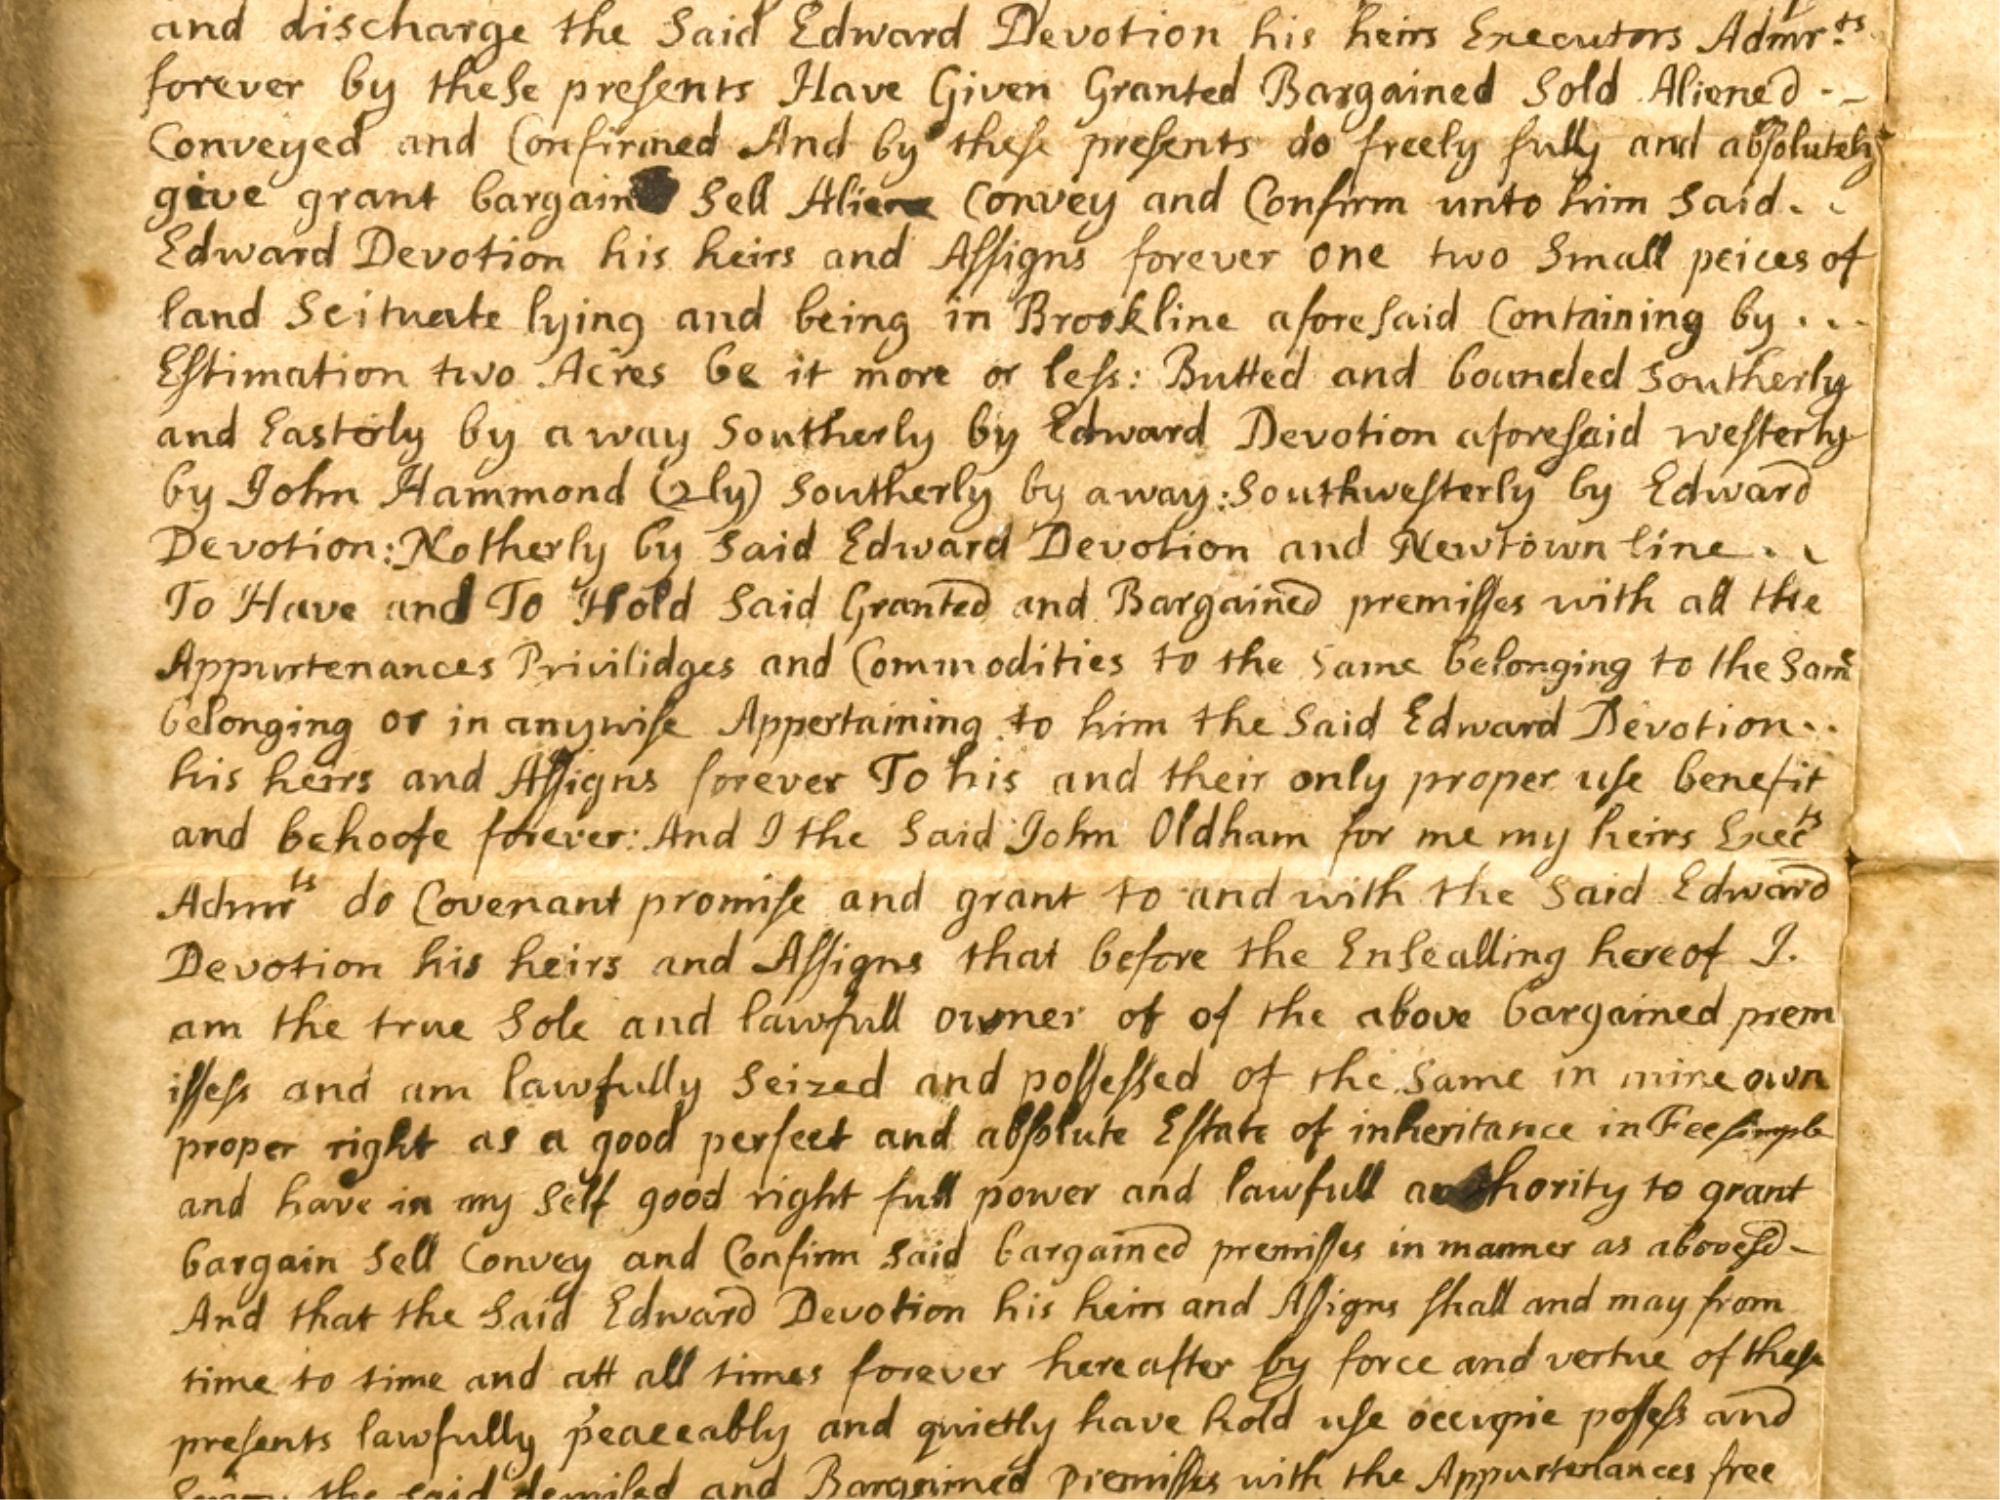 and discharge the Said Edward Devotion his heirs Executors Admrts
forever by these presents Have Given Granted Bargained Sold Aliened - -
Conveyed and Confirmed And by these presents do freely fully and absolutely
give grant bargain Sell Aliene Convey and Confirm unto him Said. .
Edward Devotion his heirs and Assigns forever one two Small peices of
land Scituate lying and being in Brookline aforesaid Containing by . . .
Estimation two Acres be it more or less: Butted and bounded Southerly
and Easterly by a way Southerly by Edward Devotion aforesaid westerly
by John Hammond (2ly) Southerly by a way: Southwesterly by Edward
Devotion: Notherly by Said Edward Devotion and Newtown line . .
To Have and To Hold Said Granted and Bargained premisses with all the
Appurtenances Privilidges and Commodities to the Same belonging to the Same
belonging or in anywise Appertaining to him the Said Edward Devotion . .
his heirs and Assigns forever To his and their only proper use benefit
and behoofe forever: And I the Said John Oldham for me my heirs Execrs
Admrts do Covenant promise and grant to and with the Said Edward
Devotion his heirs and Assigns that before the Ensealling hereof I.
am the true Sole and lawfull owner of of the above bargained prem
isses and am lawfully Seized and possessed of the Same in mine own
proper right as a good perfect and absolute Estate of inheritance in Fee simple
and have in my Self good right full power and lawfull authority to grant
bargain Sell Convey and Confirm Said bargained premisses in manner as abovesd -
And that the Said Edward Devotion his heirs and Assigns shall and may from
time to time and att all times forever hereafter by force and vertue of these
presents lawfully peaceably and quietly have hold use occupie posess and
the said demised and Bargained premisses with the Appurtenances free